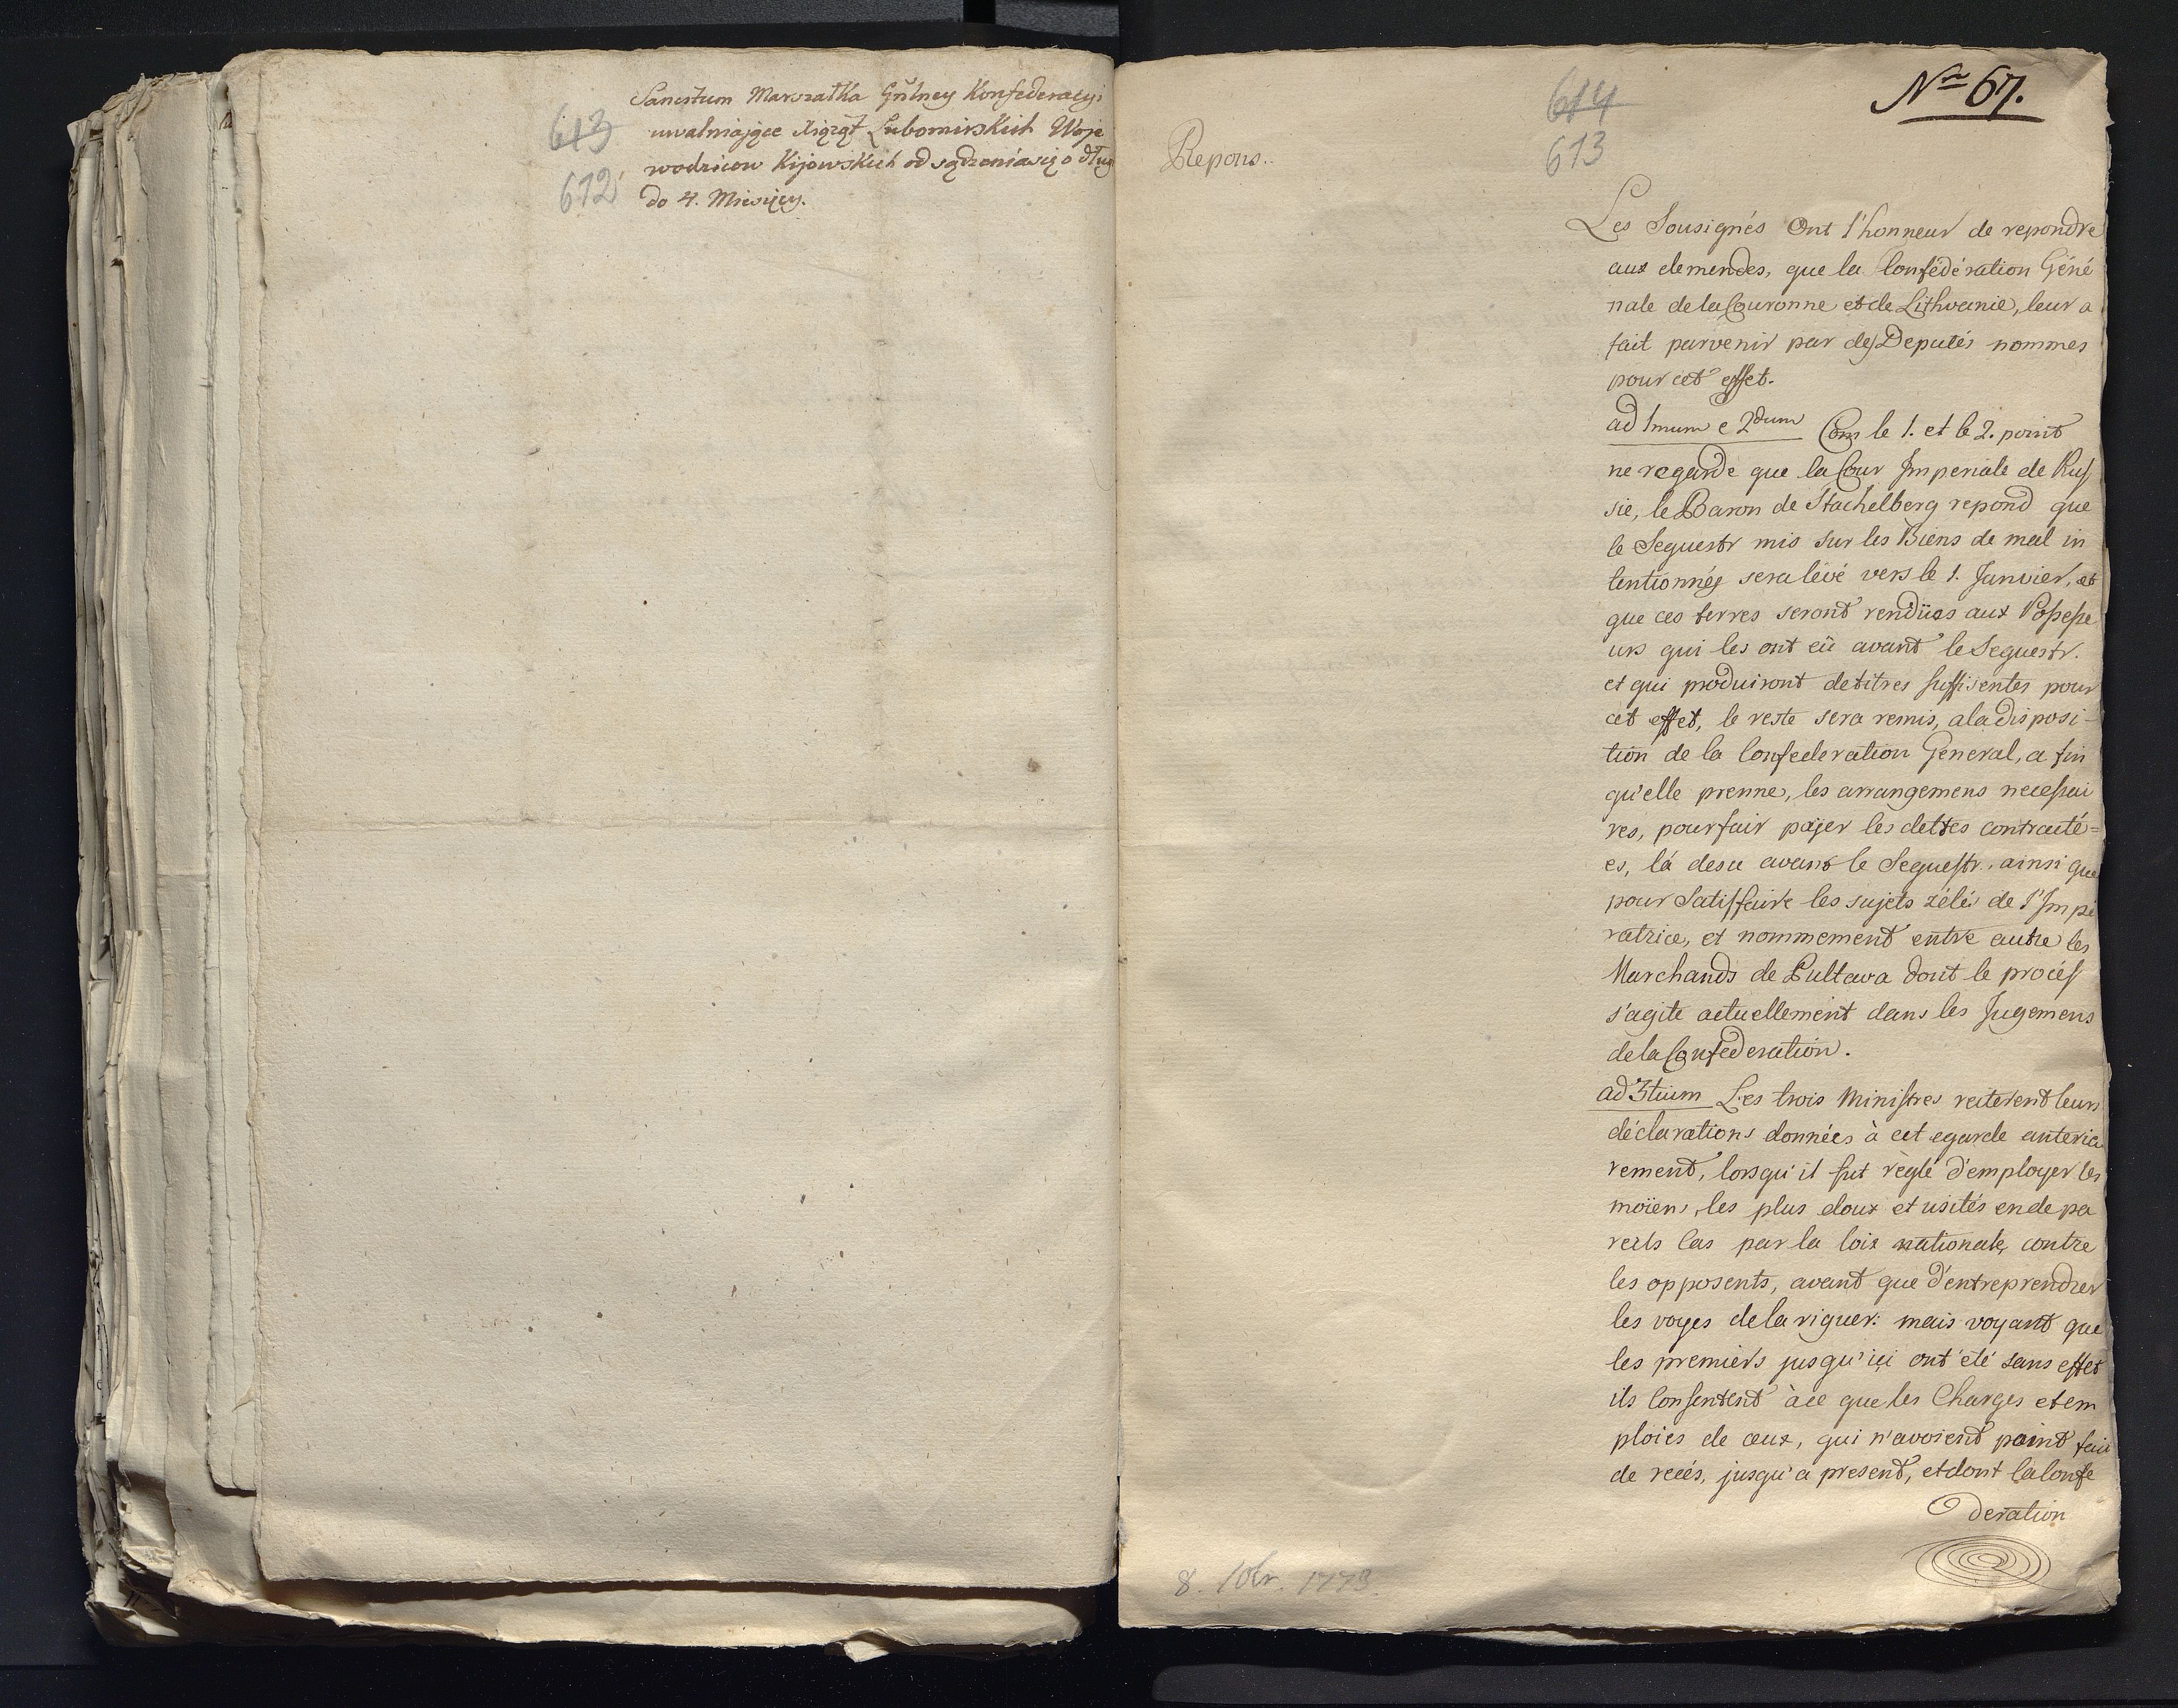 Sancitum Marszałka Gñlney Konfederacyi
uwalniaiące Xiążąt Lubomirskich Woje
wodzicow Kijowskich od sądzenia się o dług
do 4. Miesięcy.
613
612
No 67.
614
613
Repons.
Les Sousignés Ont l'honneur de repondre
aux demendes, que la Confédération Géné
rale de la Couronne et de Lithvanie, leur a
fait parvenir par des Deputés nommes
pour cet effet.
ad 1mum e 2dum Com le 1. et le 2. point
ne regarde que la Cour Imperiale de Rus
sie, le Baron de Stachelberg repond que
le Sequestr mis sur les Biens de mal in
tentionnés sera lévé vers le 1. Janvier, et
que ces terres seront rendües aux Possesse
urs qui les ont eü avant le Sequestr.
et qui produiront de titres suffisentes pour
cet effet, le reste sera remis, a la disposi-
tion de la Confederation General, a fin
qu'elle prenne, les arrangemens necessai
res, pour fair païer les dettes contracté=
es, lá desu avant le Sequestr. ainsi que
pour Satisfaire les sujets zélés de l'Impe
ratrice, et nommement entre autre les
Marchands de Pultava dont le procés
s'agite actuellement dans les Jugemens
de la Confederation.
ad 3tium Les trois Ministres reiterent leurs
déclarations données à cet egarde anterieu
rement, lorsqu'il fut règlé d'employer les
moïens, les plus doux et usités en de pa
reils cas par la loix nationale, contre
les opposents, avant que d'entreprendrer
les voyes de la riguer: mais voyant que
les premiers jusqu'içi ont été sans effet
ils Consentent à ce que les Charges et em
ploies de ceux, qui n'avoient point fait
de recés, jusqu'a present, et dont la Confe
deration
8. 10br. 1773.